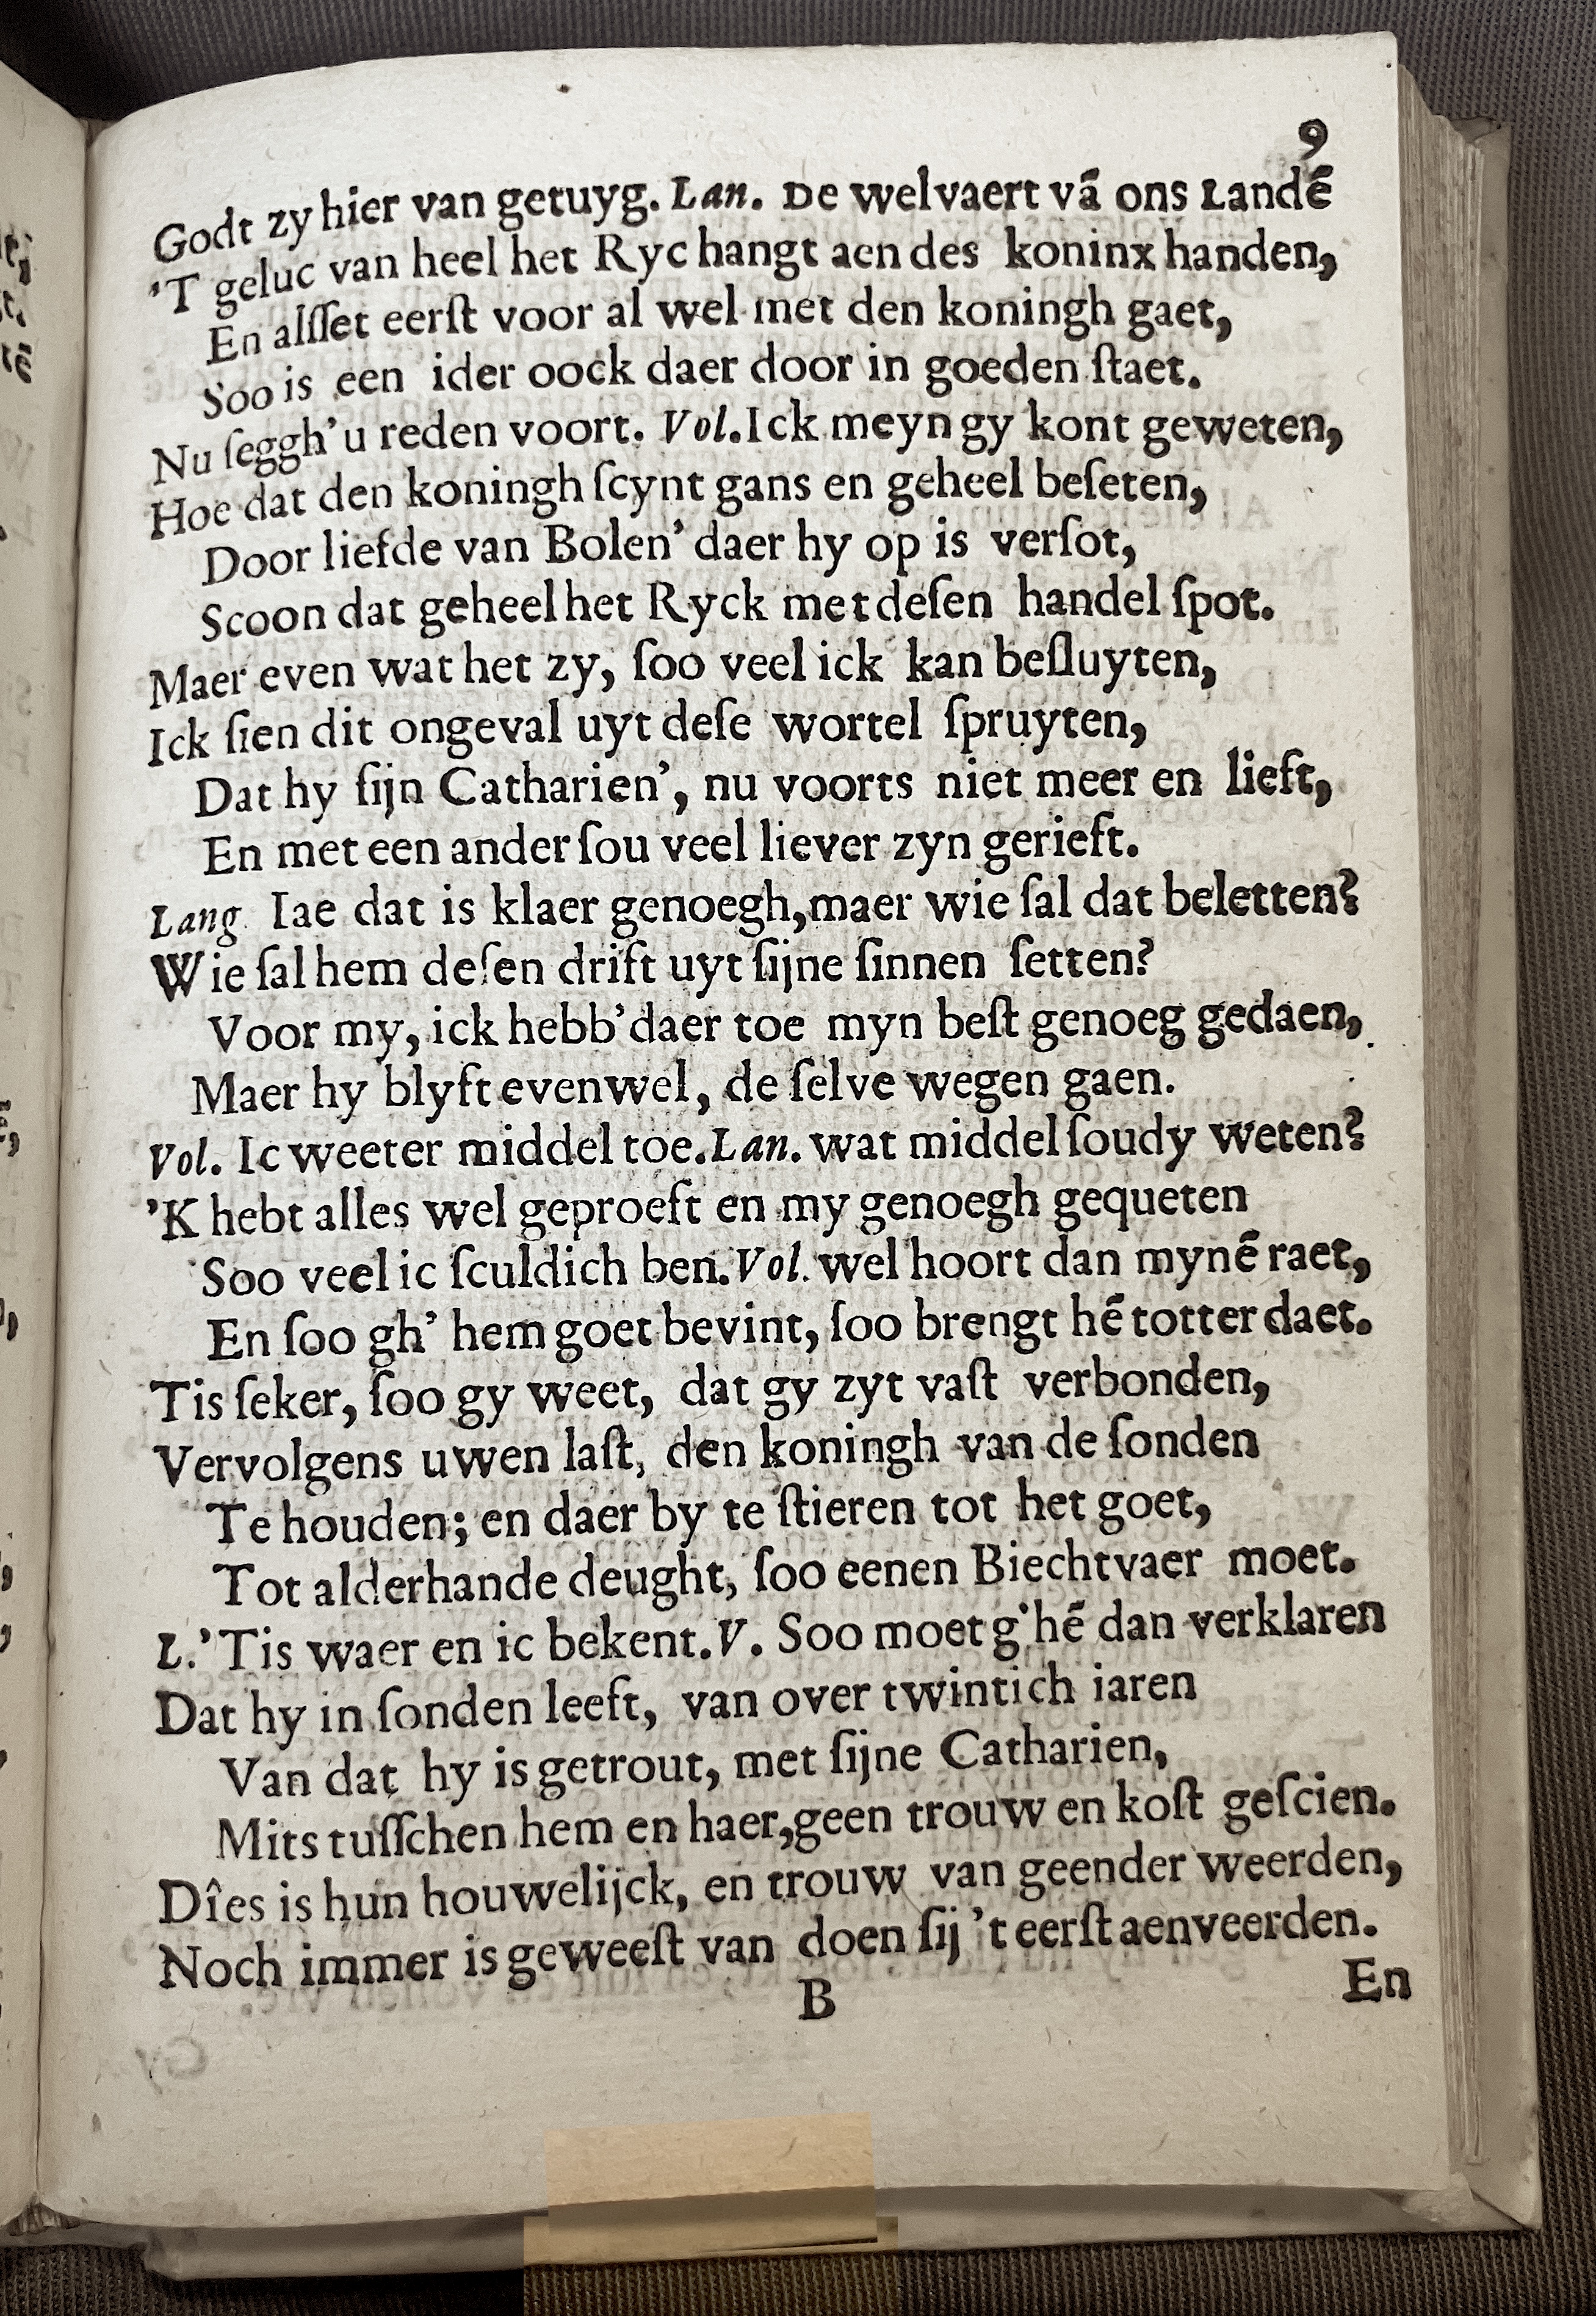 9
Godt zy hier van getuyg. Lan. De welvaert vā ons Landē
'T geluc van heel het Ryc hangt aen des koninx handen,
En alſſet eerſt voor al wel met den koningh gaet,
Soo is een ider oock daer door in goeden ſtaet.
Nu ſeggh'u reden voort. Vol. Ick meyn gy kont geweten,
Hoe dat den koningh ſcynt gans en geheel beſeten,
Door liefde van Bolen' daer hy op is verſot,
Scoon dat geheel het Ryck met deſen handel ſpot.
Maer even wat het zy, ſoo veel ick kan beſluyten,
Ick ſien dit ongeval uyt deſe wortel ſpruyten,
Dat hy ſijn Catharien', nu voorts niet meer en lieft,
En met een ander ſou veel liever zyn gerieft.
Lang. Iae dat is klaer genoegh, maer wie ſal dat beletten?
Wie ſal hem deſen drift uyt ſijne ſinnen ſetten?
Voor my, ick hebb'daer toe myn beſt genoeg gedaen,
Maer hy blyft evenwel, de ſelve wegen gaen.
Vol. Ic weeter middel toe. Lan. wat middel ſoudy weten?
'K hebt alles wel geproeft en my genoegh gequeten
Soo veel ic ſculdich ben. Vol. wel hoort dan mynē raet,
En ſoo gh' hem goet bevint, ſoo brengt hē totter daet.
Tis ſeker, ſoo gy weet, dat gy zyt vaſt verbonden,
Vervolgens uwen laſt, den koningh van de ſonden
Te houden; en daer by te ſtieren tot het goet,
Tot alderhande deught, ſoo eenen Biechtvaer moet.
L.'Tis waer en ic bekent. V. Soo moet g'hē dan verklaren
Dat hy in ſonden leeft, van over twintich iaren
Van dat hy is getrout, met ſijne Catharien,
Mits tuſſchen hem en haer, geen trouw en koſt geſcien.
Dîes is hun houwelijck, en trouw van geender weerden,
Noch immer is geweeſt van doen ſij 't eerſt aenveerden.
B
En